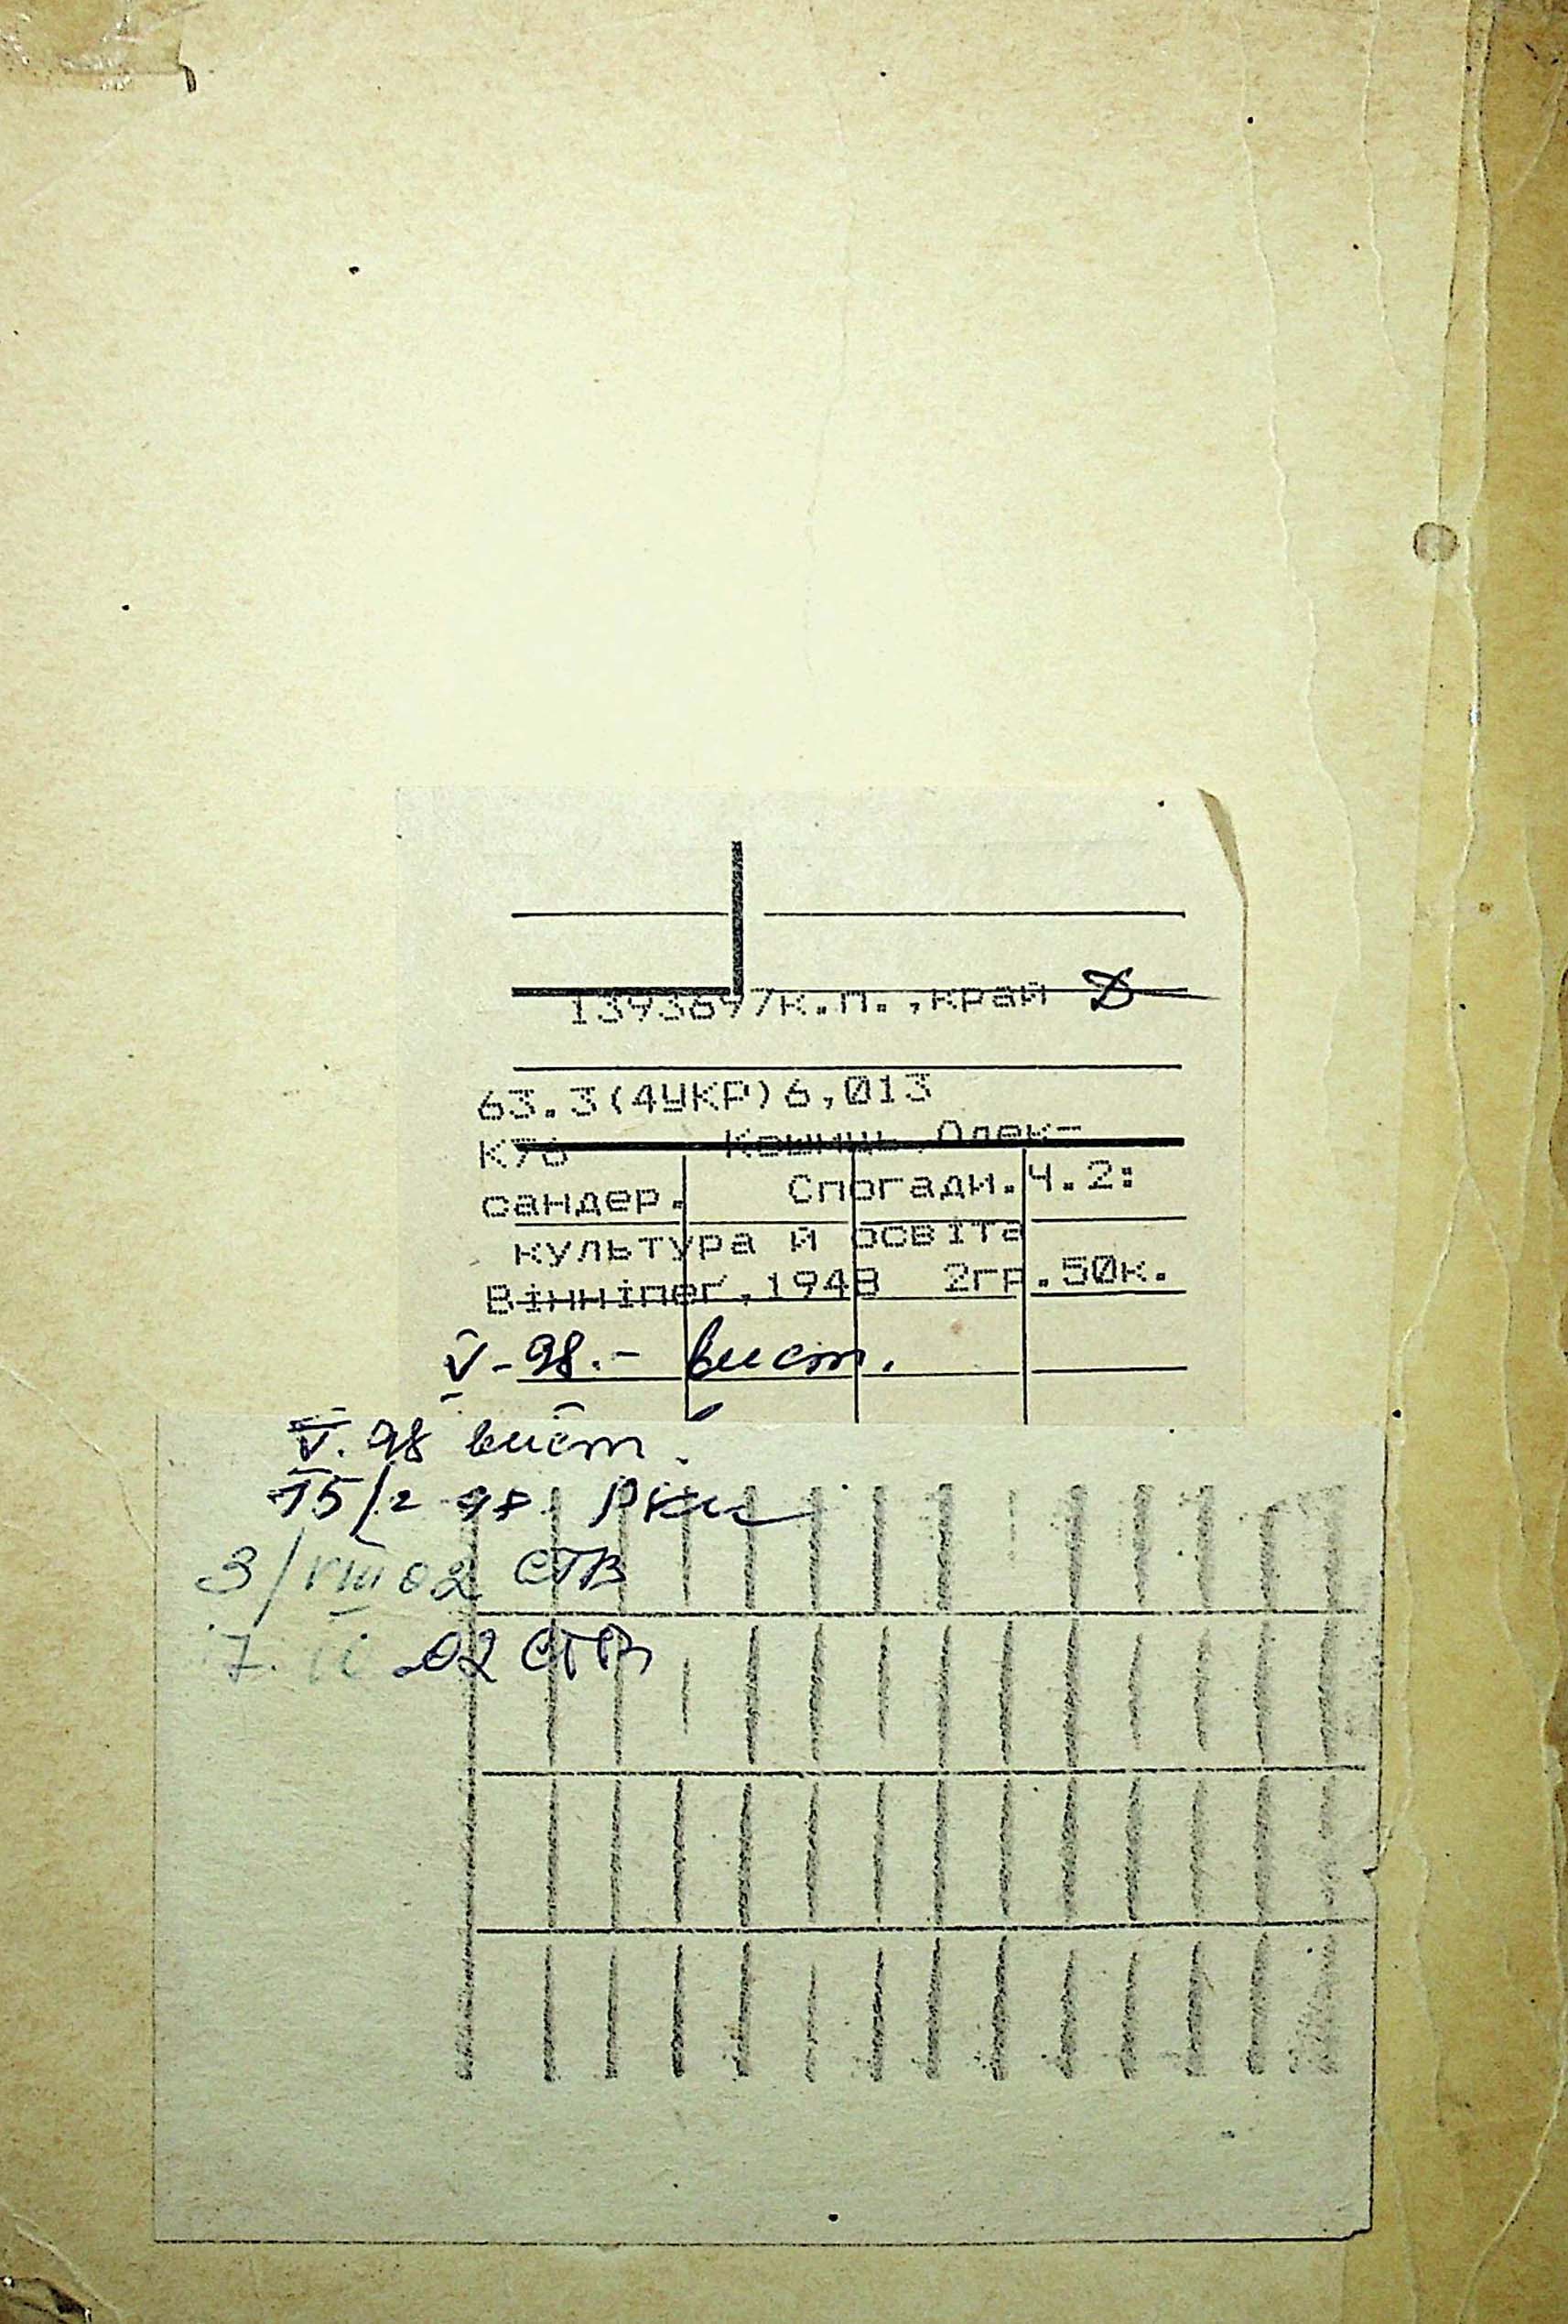 1393697/к.п.,край
63.3(4УКР)6,013
К76 Кошиць,Олек-
сандер. Спогади.Ч.2:
культура й освіта
Вінніпеґ,1948 2гр.50к.
V-98.- вист.
V. 98 вист.
15/2 98
3/VIII 02 СТВ
7. .02 СТВ